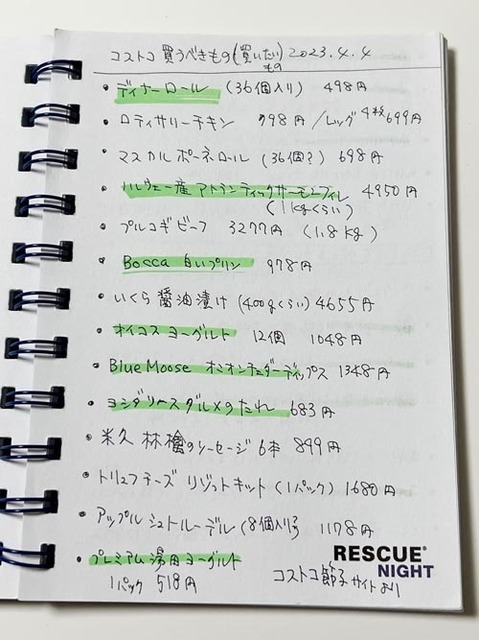 コストコ 買うべきもの(買いたいもの) 2023.4.4
・ディナーロール (36個入り) 498円
・ロティサリーチキン 798円 /レッグ4本699円
・マスカルポーネロール (36個?) 698円
・ノルウェー産アトランティックサーモンフィレ 4950円
(1kgくらい)
・プルコギビーフ 3277円 (1.8kg)
・Bocca 白いプリン 978円
・いくら醤油漬け (400gくらい) 4655円
・オイコスヨーグルト 12個 1048円
・Blue Moose オニオンチェダーディップス 1348円
・ヨシダソースグルメのたれ 683円
・米久 林檎のソーセージ 6本 899円
・トリュフチーズ リゾットキット (1パック) 1680円
・アップルシュトルーデル (8個入り) 1178円
・プレミアム湯田ヨーグルト
1パック 518円
RESCUE®
NIGHT
コストコ節子サイトより